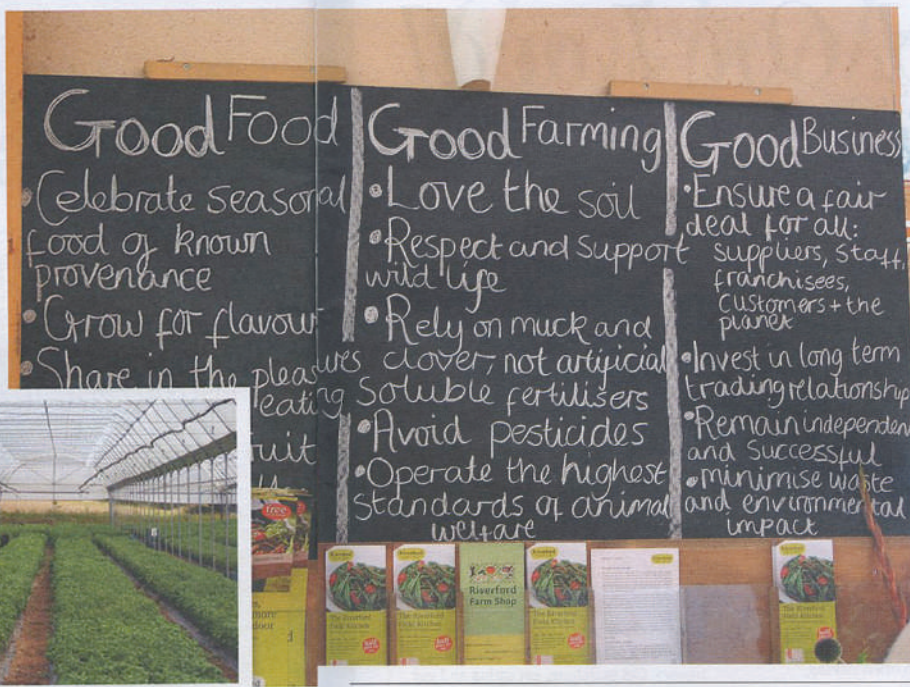 Good Food
• Celebrate seasonal
food of known
provenance
• Grow for flavour
• Share in the pleasures
eating
Good Farming
• Love the soil
• Respect and support
wild life
• Rely on muck and
clover, not artificial
soluble fertilisers
• Avoid pesticides
• Operate the highest
standards of animal
welfare
Good Business
• Ensure a fair
deal for all:
suppliers, staff,
franchisees,
customers + the
planet
• Invest in long term
trading relationship
• Remain independen
and successful
• minimise waste
and environmental
impact
free
Riverford
The Riverford
Field Kitchen
Riverford
The Riverford
Field Kitchen
Riverford
Farm Shop
Riverford
The Riverford
Field Kitchen
The Riverford
Field Kitchen